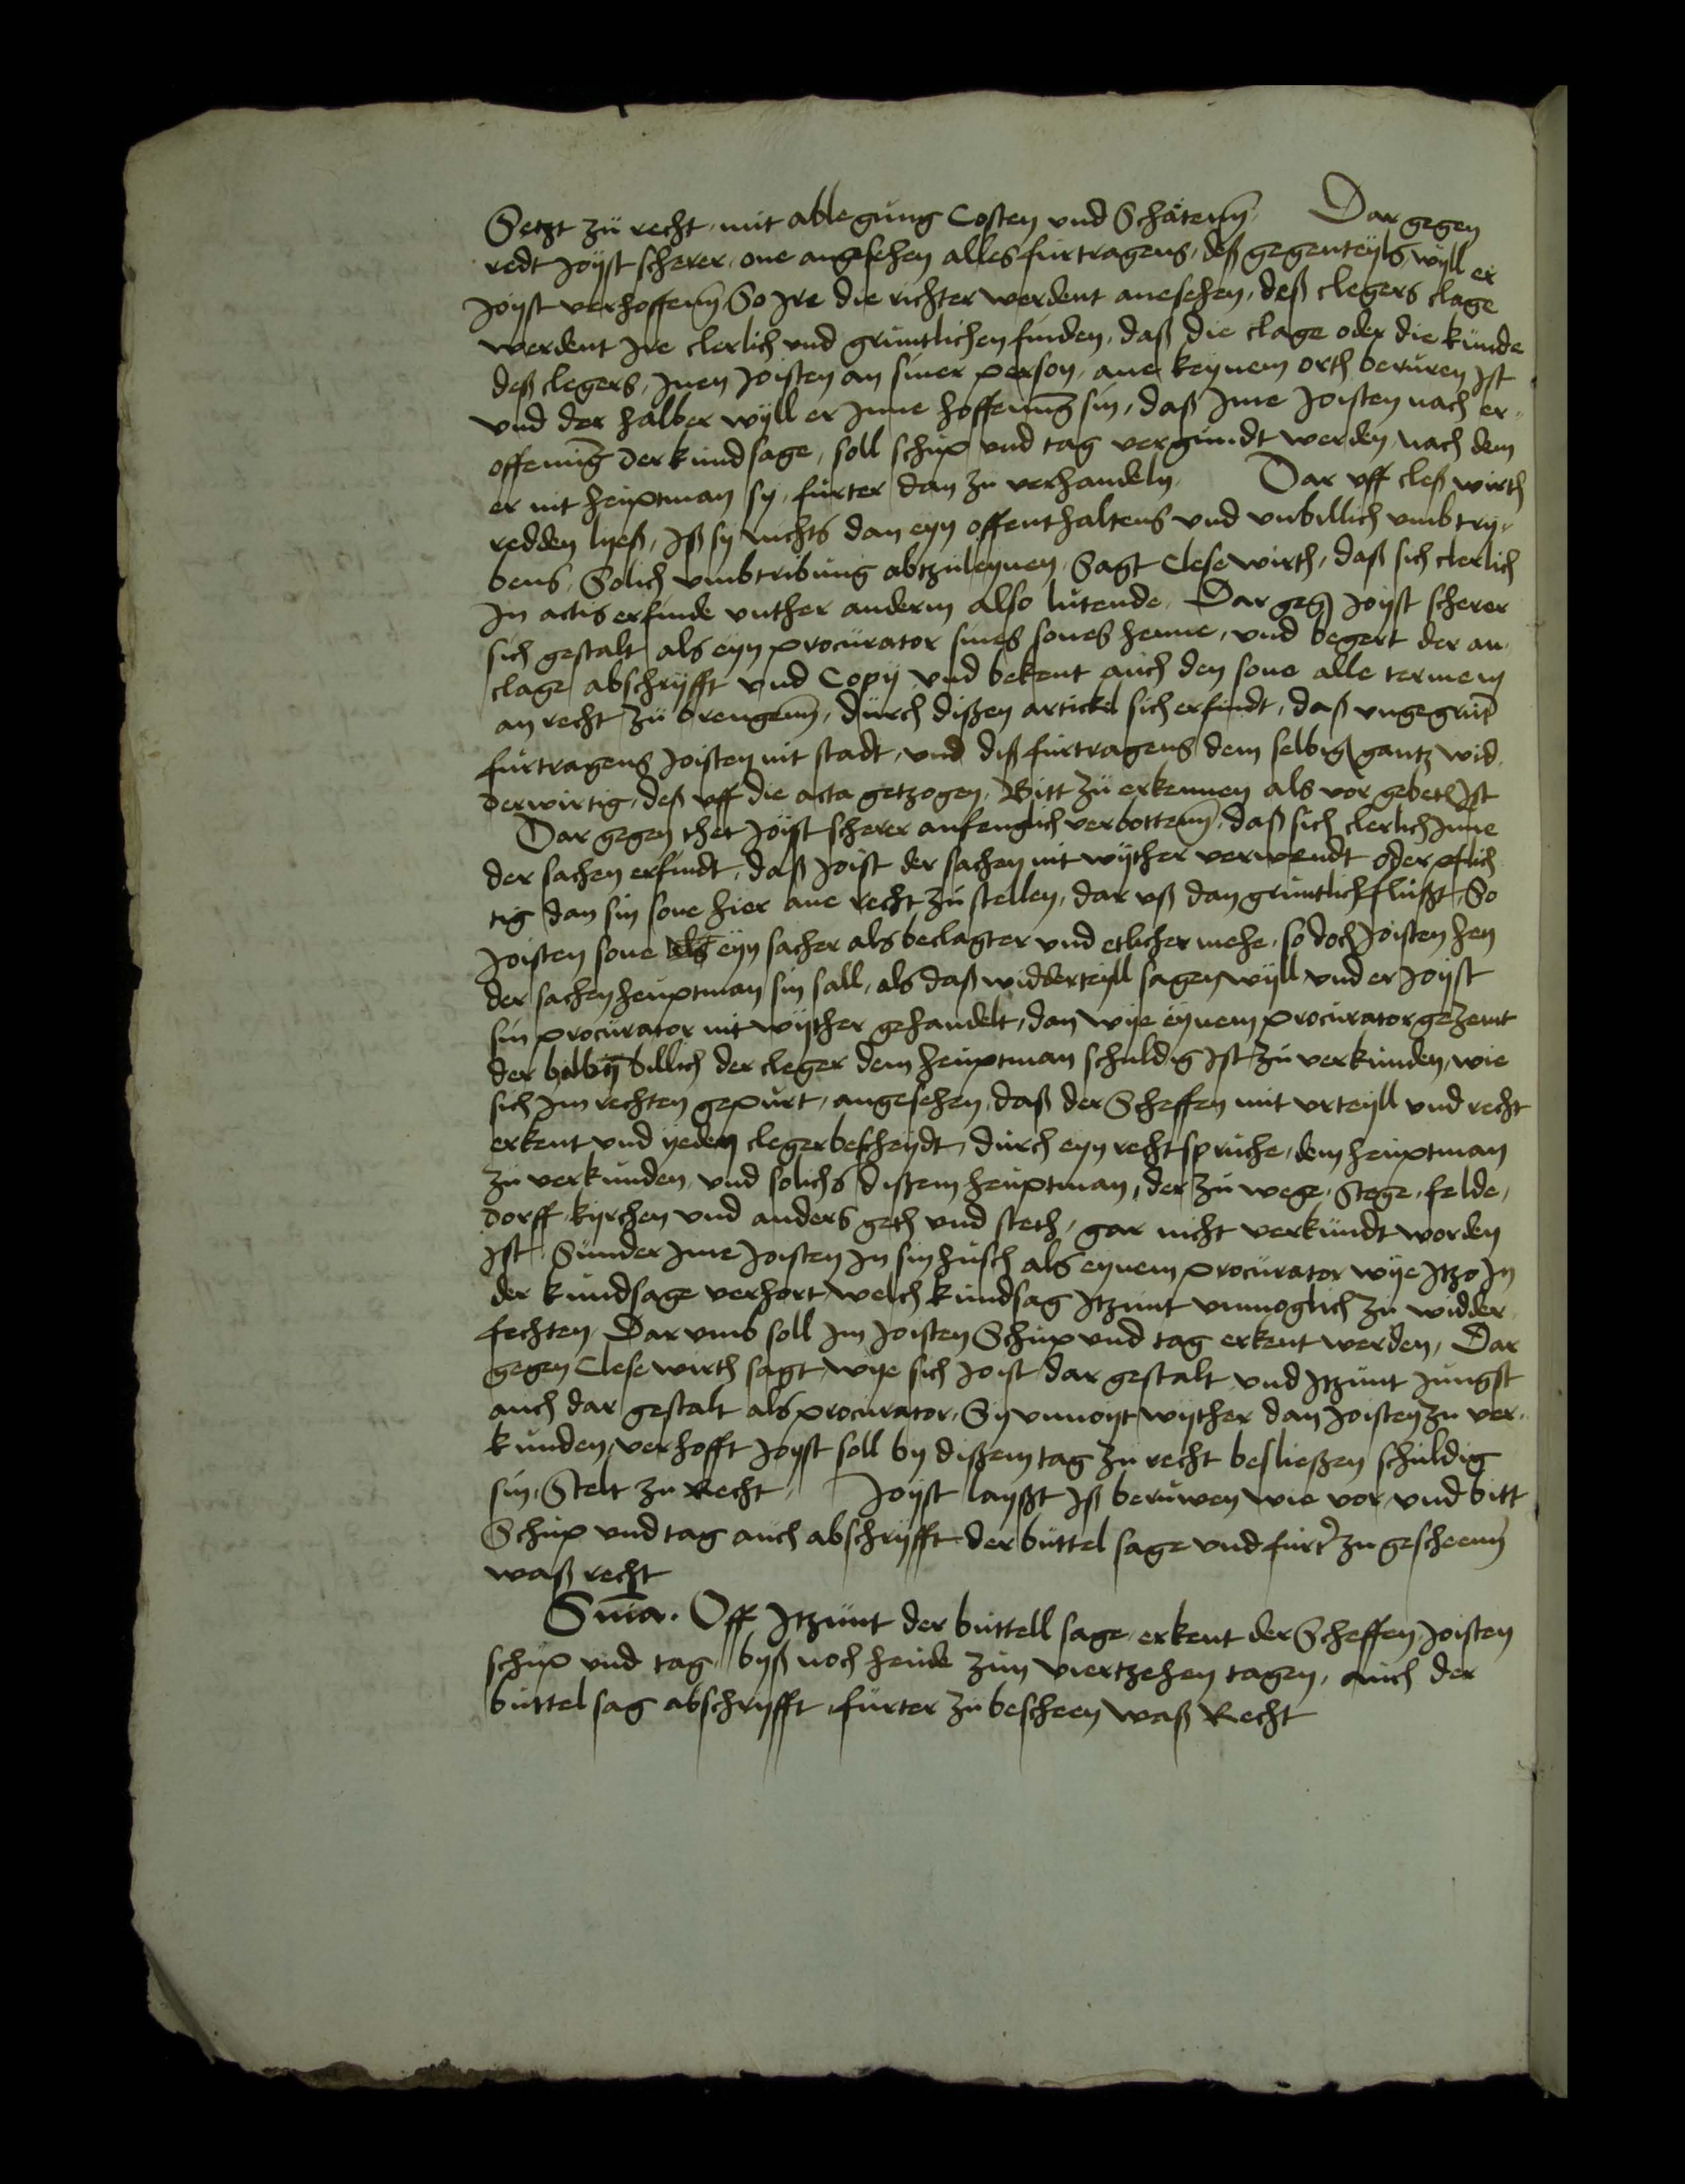 Setzt zü recht, mit ablegüng Costen vnd Schäten̄. Dar gegen
redt Joÿst scherer, one angesehen alles fürtragens, deß gegenteÿls, wÿll er
Joÿst verhoffen̄ So Jre die richter werdent anesehen, deß clegers clage
werdent Jre clerlich vnd grüntlichen finden, daß die clage oder die künde
deß clegers, Jnen Joisten an siner person, ane keynem orth berüren Jst
vnd der halber wÿll er Jnne hoffenūg sin, daß Jme Joisten nach er-
offenūg der kündsage, soll schüp vnd tag vergündt werden, nach dem
er nit heüptman sÿ, fürter dan zü verhandeln. Dar vff cleß wirth
redden lyeß, Jß sÿ nichts dan eyn offenthaltens vnd vnbillich vmbtrÿ-
bens, Solich vmbtribüng abzüleynen, Sagt Clese wirth, daß sich clerlich
Jn actis erfinde vnther anderm also lutende, Dar geḡ Joÿst scherer
sich gestalt als eyn procürator sines sones henne, vnd begert der an-
clage abschrÿfft vnd Copÿ vnd bekent aüch den sone alle termeni
an recht zü brengen̄, dürch dißen artickel sich erfindt, daß vngegrüt
fürtragens Joisten nit stadt, vnd diß fürtragens dem selbig gantz wid-
derwirtig, deß vff die acta getzogen, Bitt zü erkennen als vor gebet Jst
Dar gegen thet Joÿst scherer anfenglich verbotten̄, daß sich clerlich Jnne
der sachen erfindt, daß Joist der sachen nit wÿther verwendt oder pflich
tig dan sin sone hier ane recht zü stellen, dar vß dan grüntlich flüßt, So
Joisten sone eyn sacher als beclagter vnd etlicher mehe, so doch Joisten hen
der sachen heüptman sin sall, als daß widderteÿll sagen wÿll vnd er Joÿst
sin procürator nit wÿther gehandelt, dan wÿe eynem procürator gezemt
der halbn̄ billich der cleger dem heüptman schüldig Jst zü verkünden, wie
sich Jm rechten gepürt, angesehen, daß der Scheffen mit vrteÿll vnd recht
erkent vnd yeden cleger bescheÿdt, dürch eyn rechtsprüche, dem heüptman
zü verkünden, vnd solichs dißem heüptman, der zü wege, Stege, felde,
dorff, kÿrchen vnd anders geth vnd steth, gar nicht verkündt worden
Jst, Sünder Jme Joisten Jn sin hüsch als eynem procürator wÿe Jtzo Jn
der kündsage verhort, welch kündsag Jtzünt vnmoglich zü widder-
fechten, Dar vmb soll Jm Joisten Schüp vnd tag erkent werden, Dar
gegen Clese wirth sagt, wÿe sich Joist dar gestalt vnd Jtzünt Jüngst
aüch dar gestalt als procürator, Sÿ vnnoit wÿther dan Joisten zü ver-
künden, verhofft Joÿst soll bÿ dißem tag zü recht besließen schüldig
sin, Stelt zü Recht, Joÿst layßt Jß berüwen wie vor, vnd bitt
Schüp vnd tag aüch abschrÿfft der büttel sage vnd fürt' zü gescheen̄
waß recht
Sn̄ia. Off Jtzünt der büttell sage, erkent der Scheffen Joisten
schüp vnd tag, byß noch heüde zün viertzehen tagen, aüch der
büttel sag abschrÿfft, fürter zü bescheen waß Recht